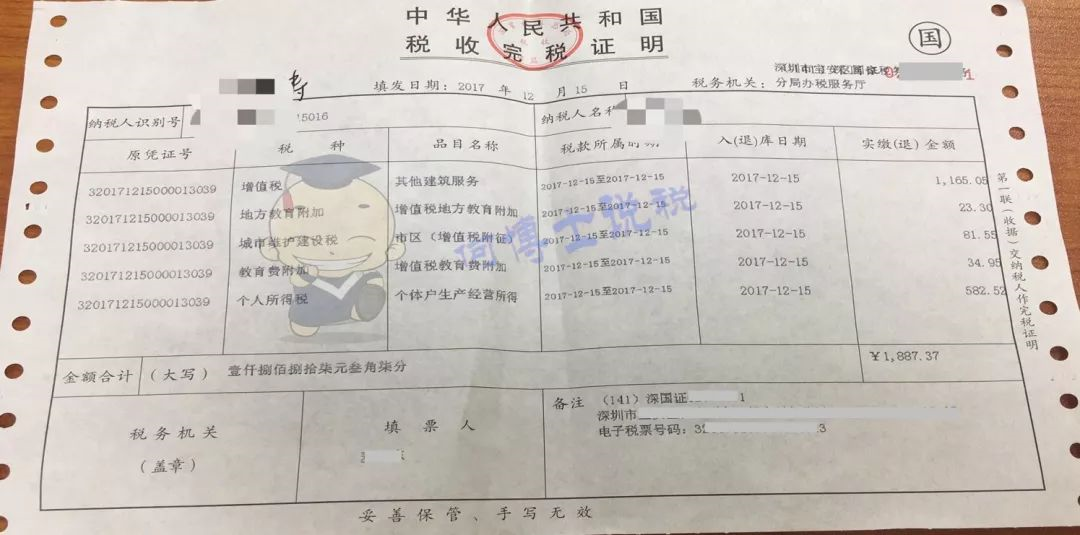 中华人民共和国
税收完税证明
国
填发日期：2017 年 12 月 15 日
税务机关：
分局办税服务厅
纳税人识别号 5016
纳税人名称
原凭证号 税 种 品目名称 税款所属时期 入(退)库日期 实缴(退)金额
320171215000013039 增值税 其他建筑服务 2017-12-15至2017-12-15 2017-12-15 1,165.05
320171215000013039 地方教育附加 增值税地方教育附加 2017-12-15至2017-12-15 2017-12-15 23.30
320171215000013039 城市维护建设税 市区（增值税附征） 2017-12-15至2017-12-15 2017-12-15 81.55
320171215000013039 教育费附加 增值税教育费附加 2017-12-15至2017-12-15 2017-12-15 34.95
320171215000013039 个人所得税 个体户生产经营所得 2017-12-15至2017-12-15 2017-12-15 582.52
金额合计 （大写） 壹仟捌佰捌拾柒元叁角柒分 ￥1,887.37
税务机关
（盖章）
填 票 人
备注 （141）深国证 1
深圳市
电子税票号码：32 3
妥善保管、手写无效
第一联（收据）交纳税人作完税证明
博士说税